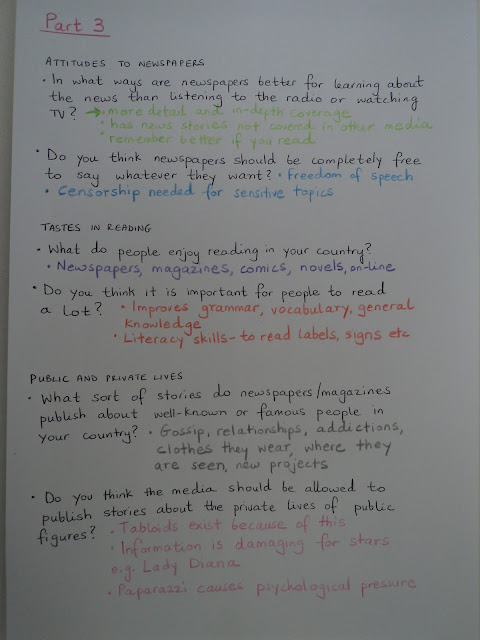 Part 3
ATTITUDES TO NEWSPAPERS
• In what ways are newspapers better for learning about
the news than listening to the radio or watching
TV? → • more detail and in-depth coverage
• has news stories not covered in other media
• remember better if you read
• Do you think newspapers should be completely free
to say whatever they want? • Freedom of speech
• Censorship needed for sensitive topics
TASTES IN READING
• What do people enjoy reading in your country?
• Newspapers, magazines, comics, novels, on-line
• Do you think it is important for people to read
a lot? • Improves grammar, vocabulary, general
knowledge
• Literacy skills - to read labels, signs etc
PUBLIC AND PRIVATE LIVES
• What sort of stories do newspapers/magazines
publish about well-known or famous people in
your country? • Gossip, relationships, addictions,
clothes they wear, where they
are seen, new projects
• Do you think the media should be allowed to
publish stories about the private lives of public
figures? • Tabloids exist because of this
• Information is damaging for stars
e.g. Lady Diana
• Paparazzi causes psychological pressure